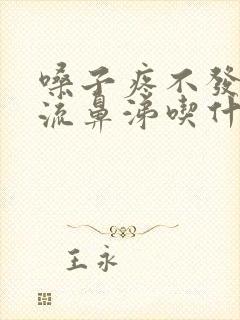 嗓子疼不發
流鼻涕喫什
王永